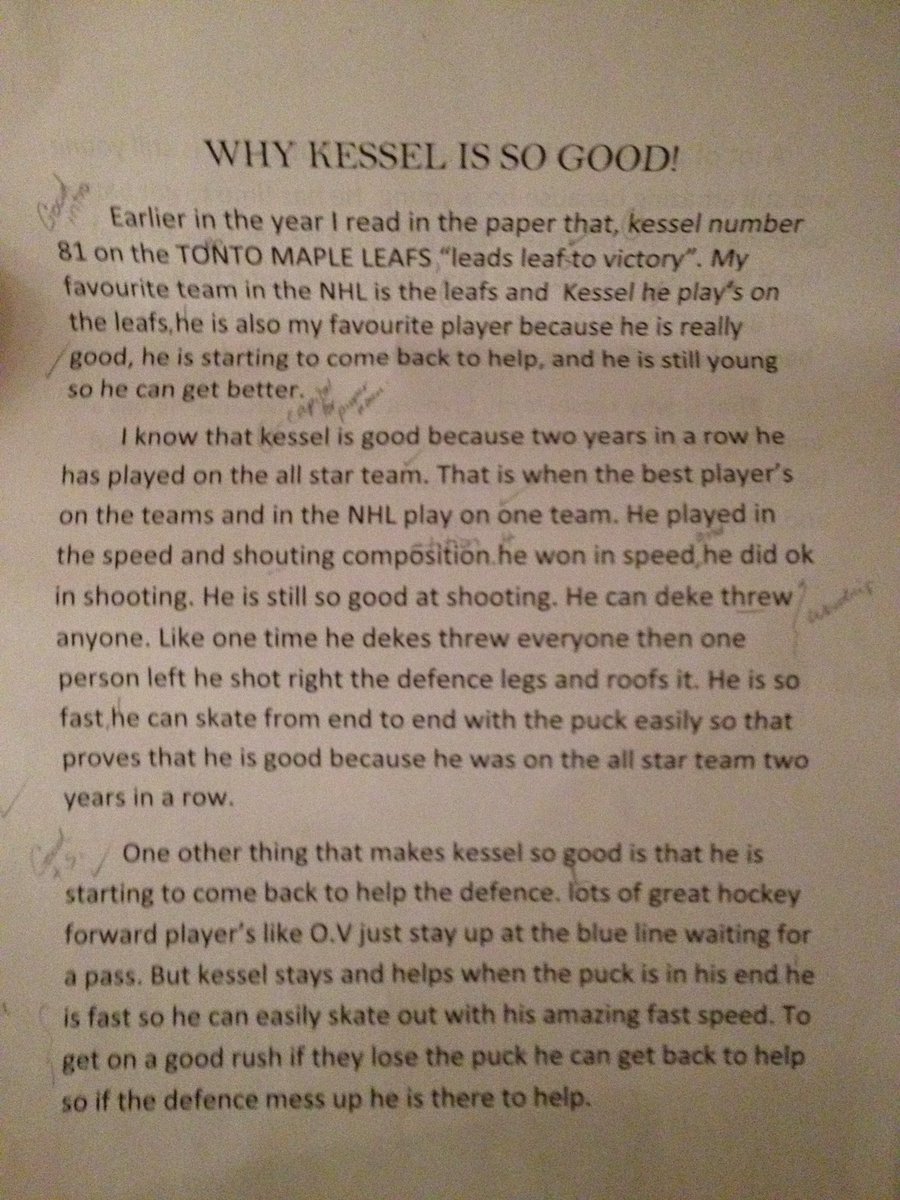 WHY KESSEL IS SO GOOD!
Good intro
Earlier in the year I read in the paper that, kessel number
81 on the TONTO MAPLE LEAFS "leads leaf to victory". My
favourite team in the NHL is the leafs and Kessel he play's on
the leafs, he is also my favourite player because he is really
good, he is starting to come back to help, and he is still young
so he can get better.
I know that kessel is good because two years in a row he
has played on the all star team. That is when the best player's
on the teams and in the NHL play on one team. He played in
the speed and shouting composition he won in speed he did ok
in shooting. He is still so good at shooting. He can deke threw
wording
anyone. Like one time he dekes threw everyone then one
person left he shot right the defence legs and roofs it. He is so
fast he can skate from end to end with the puck easily so that
proves that he is good because he was on the all star team two
years in a row.
Good
One other thing that makes kessel so good is that he is
starting to come back to help the defence. lots of great hockey
forward player's like O.V just stay up at the blue line waiting for
a pass. But kessel stays and helps when the puck is in his end he
is fast so he can easily skate out with his amazing fast speed. To
get on a good rush if they lose the puck he can get back to help
so if the defence mess up he is there to help.